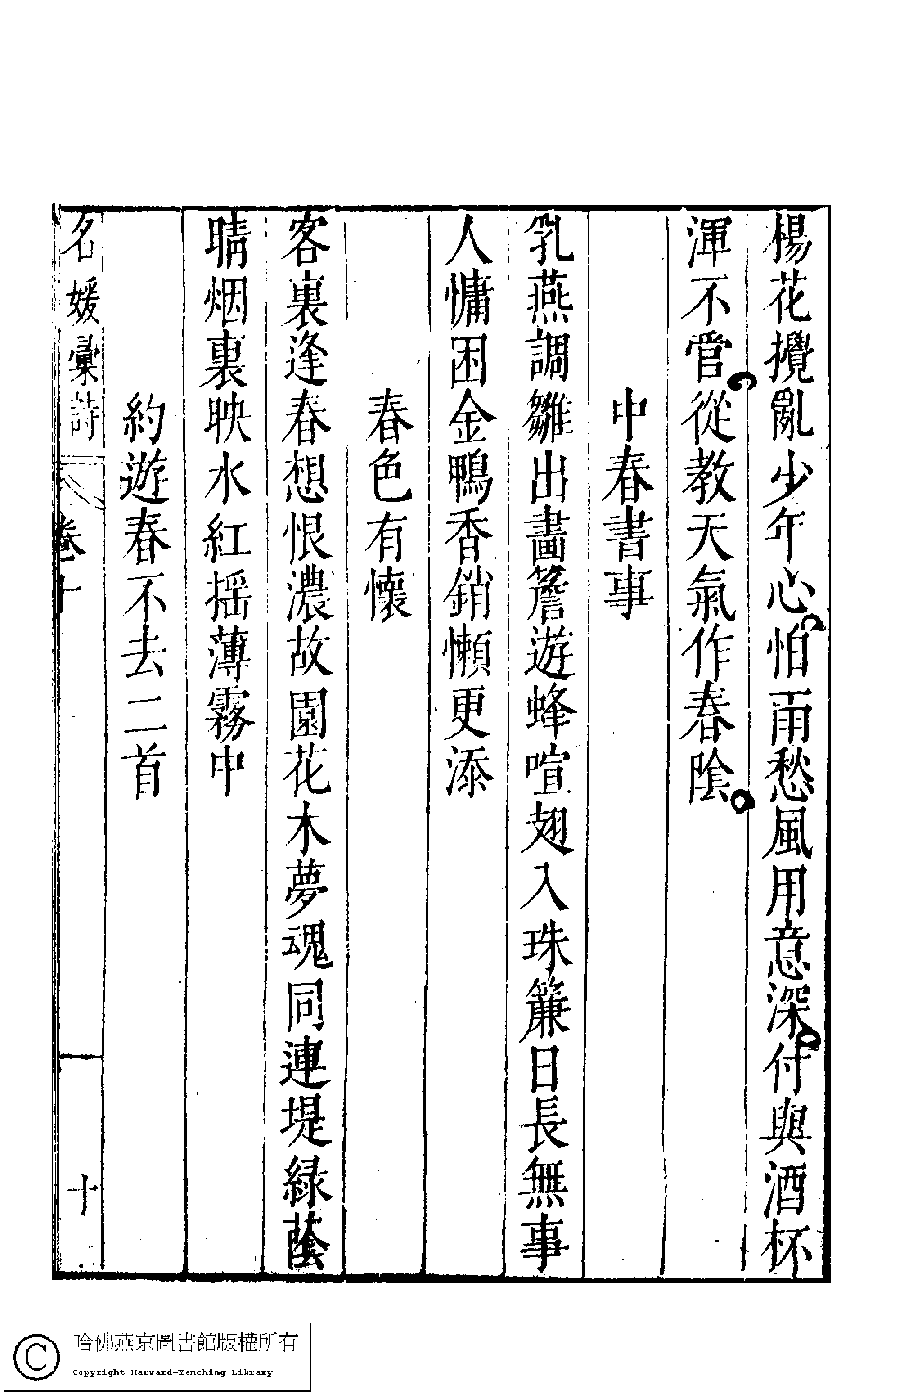 楊花攪亂少年心怕雨愁風用意深付與酒杯
渾不管從教天氣作春陰
中春書事
乳燕調雛出畫簷遊蜂喧翅入珠簾日長無事
人慵困金鴨香銷懶更添
春色有懷
客裏逢春想恨濃故園花木夢魂同連堤緑蔭
晴烟裏映水紅摇薄霧中
約遊春不去二首
名媛彙詩 卷十 十
哈佛燕京圖書館版權所有
Copyright Harvard-Yenching Library